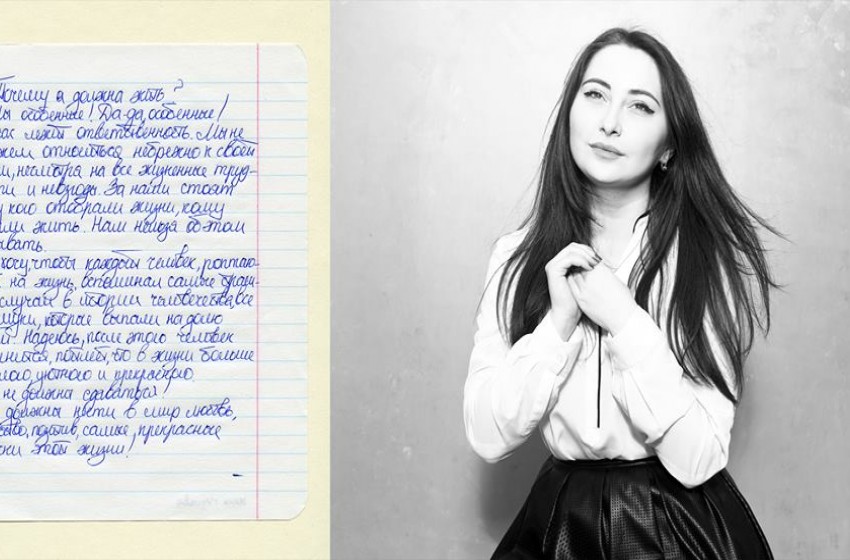 Почему я должна жить?
ы особенные! Да-да, особенные!
ас лежит ответственность. Мы не
жем относиться небрежно к своей
и, несмотря на все жизненные труд-
ти и невзгоды. За нами стоят
у кого отобрали жизни, кому
али жить. Нам нельзя об этом
ывать.
хочу, чтобы каждый человек, роптаю-
на жизнь, вспоминал самые траги-
случаи в истории человечества, все
муки, которые выпали на долю
й. Надеюсь, после этого человек
нится, поймёт, что в жизни больше
лого, уютного и прекрасного.
не должна сдаваться!
должны нести в мир любовь,
ство, позитив, самые прекрасные
ски этой жизни!